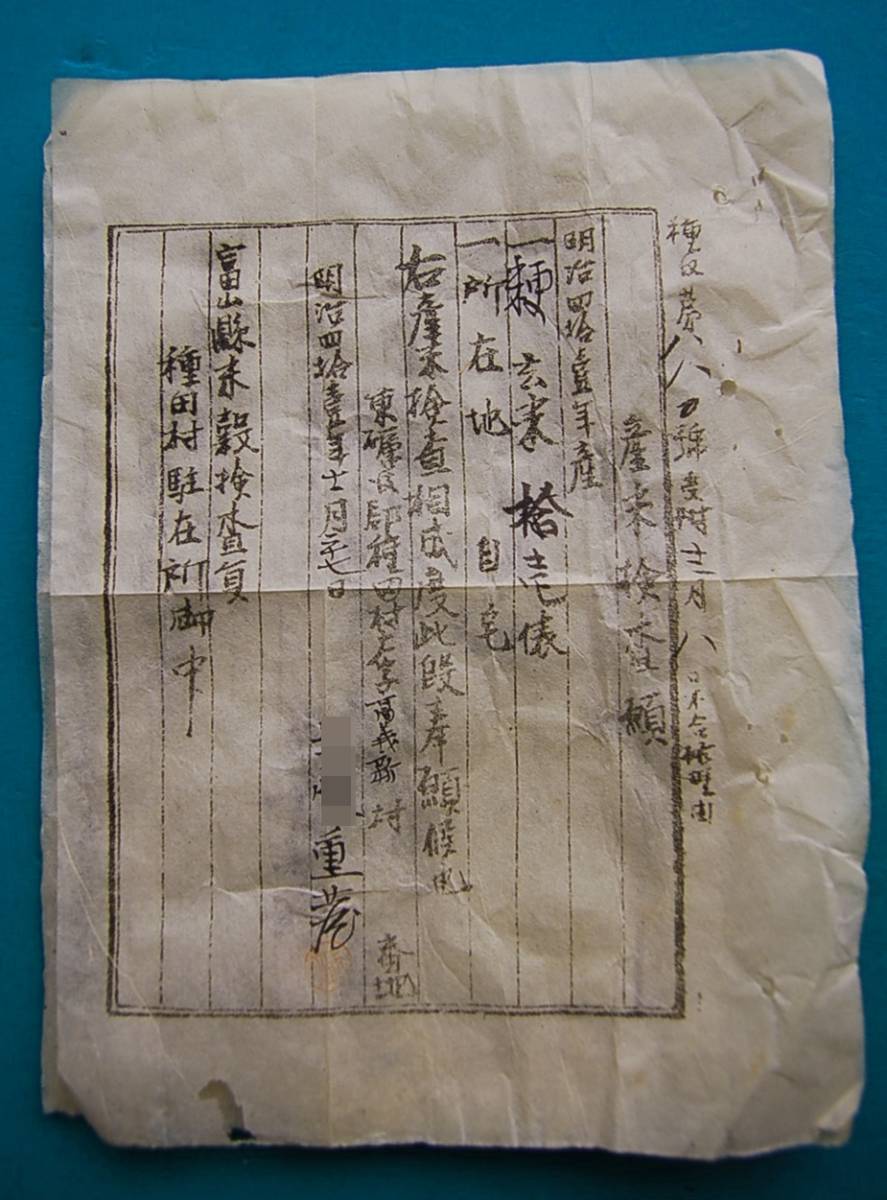 種収第八八〇號受附十二月八日不合格理由
産米検査願
明治四拾壹年産
一粳玄米拾壱俵
一所在地 自宅
右産米検査相成度此段奉願候也
東礪波郡種田村大字 新村 番地
明治四拾壹年十二月七日
重蔵
富山縣米穀検査員
種田村駐在所御中